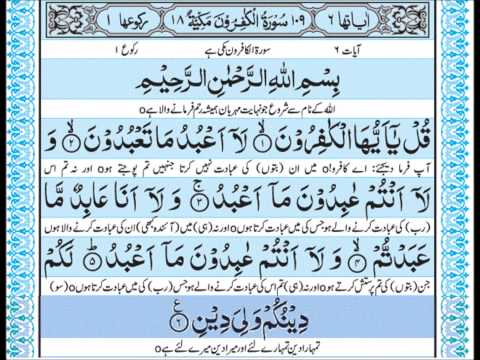 اٰیَاتُهَا ٦ ١٠٩ سُوْرَةُ الْكٰفِرُوْنَ مَكِّيَّةٌ ١٨ رُكُوْعُهَا ١
آیات ٦ سورۃ الکافرون مکی ہے رکوع ١
بِسْمِ اللّٰهِ الرَّحْمٰنِ الرَّحِيْمِ
اللہ کے نام سے شروع جو نہایت مہربان ہمیشہ رحم فرمانے والا ہے o
قُلْ يٰۤاَيُّهَا الْكٰفِرُوْنَ ۙ‏﴿۱﴾ لَاۤ اَعْبُدُ مَا تَعْبُدُوْنَ ۙ‏﴿۲﴾ وَ
آپ فرما دیجئے: اے کافرو! o میں ان (بتوں) کی عبادت نہیں کرتا جنہیں تم پوجتے ہو o اور نہ تم اس
لَاۤ اَنْتُمْ عٰبِدُوْنَ مَاۤ اَعْبُدُ ۚ‏﴿۳﴾ وَ لَاۤ اَنَا عَابِدٌ مَّا
(رب) کی عبادت کرنے والے ہو جس کی میں عبادت کرتا ہوں o اور نہ (ہی) میں (آئندہ کبھی) ان کی عبادت کرنے والا ہوں
عَبَدْتُّمْ ۙ‏﴿۴﴾ وَ لَاۤ اَنْتُمْ عٰبِدُوْنَ مَاۤ اَعْبُدُ ؕ‏﴿۵﴾ لَكُمْ
جن (بتوں) کی تم پرستش کرتے ہو o اور نہ (ہی) تم اس کی عبادت کرنے والے ہو جس (رب) کی میں عبادت کرتا ہوں o (سو)
دِيْنُكُمْ وَلِيَ دِيْنِ ﴿۶﴾ ع
تمہارا دین تمہارے لئے اور میرا دین میرے لئے ہے o